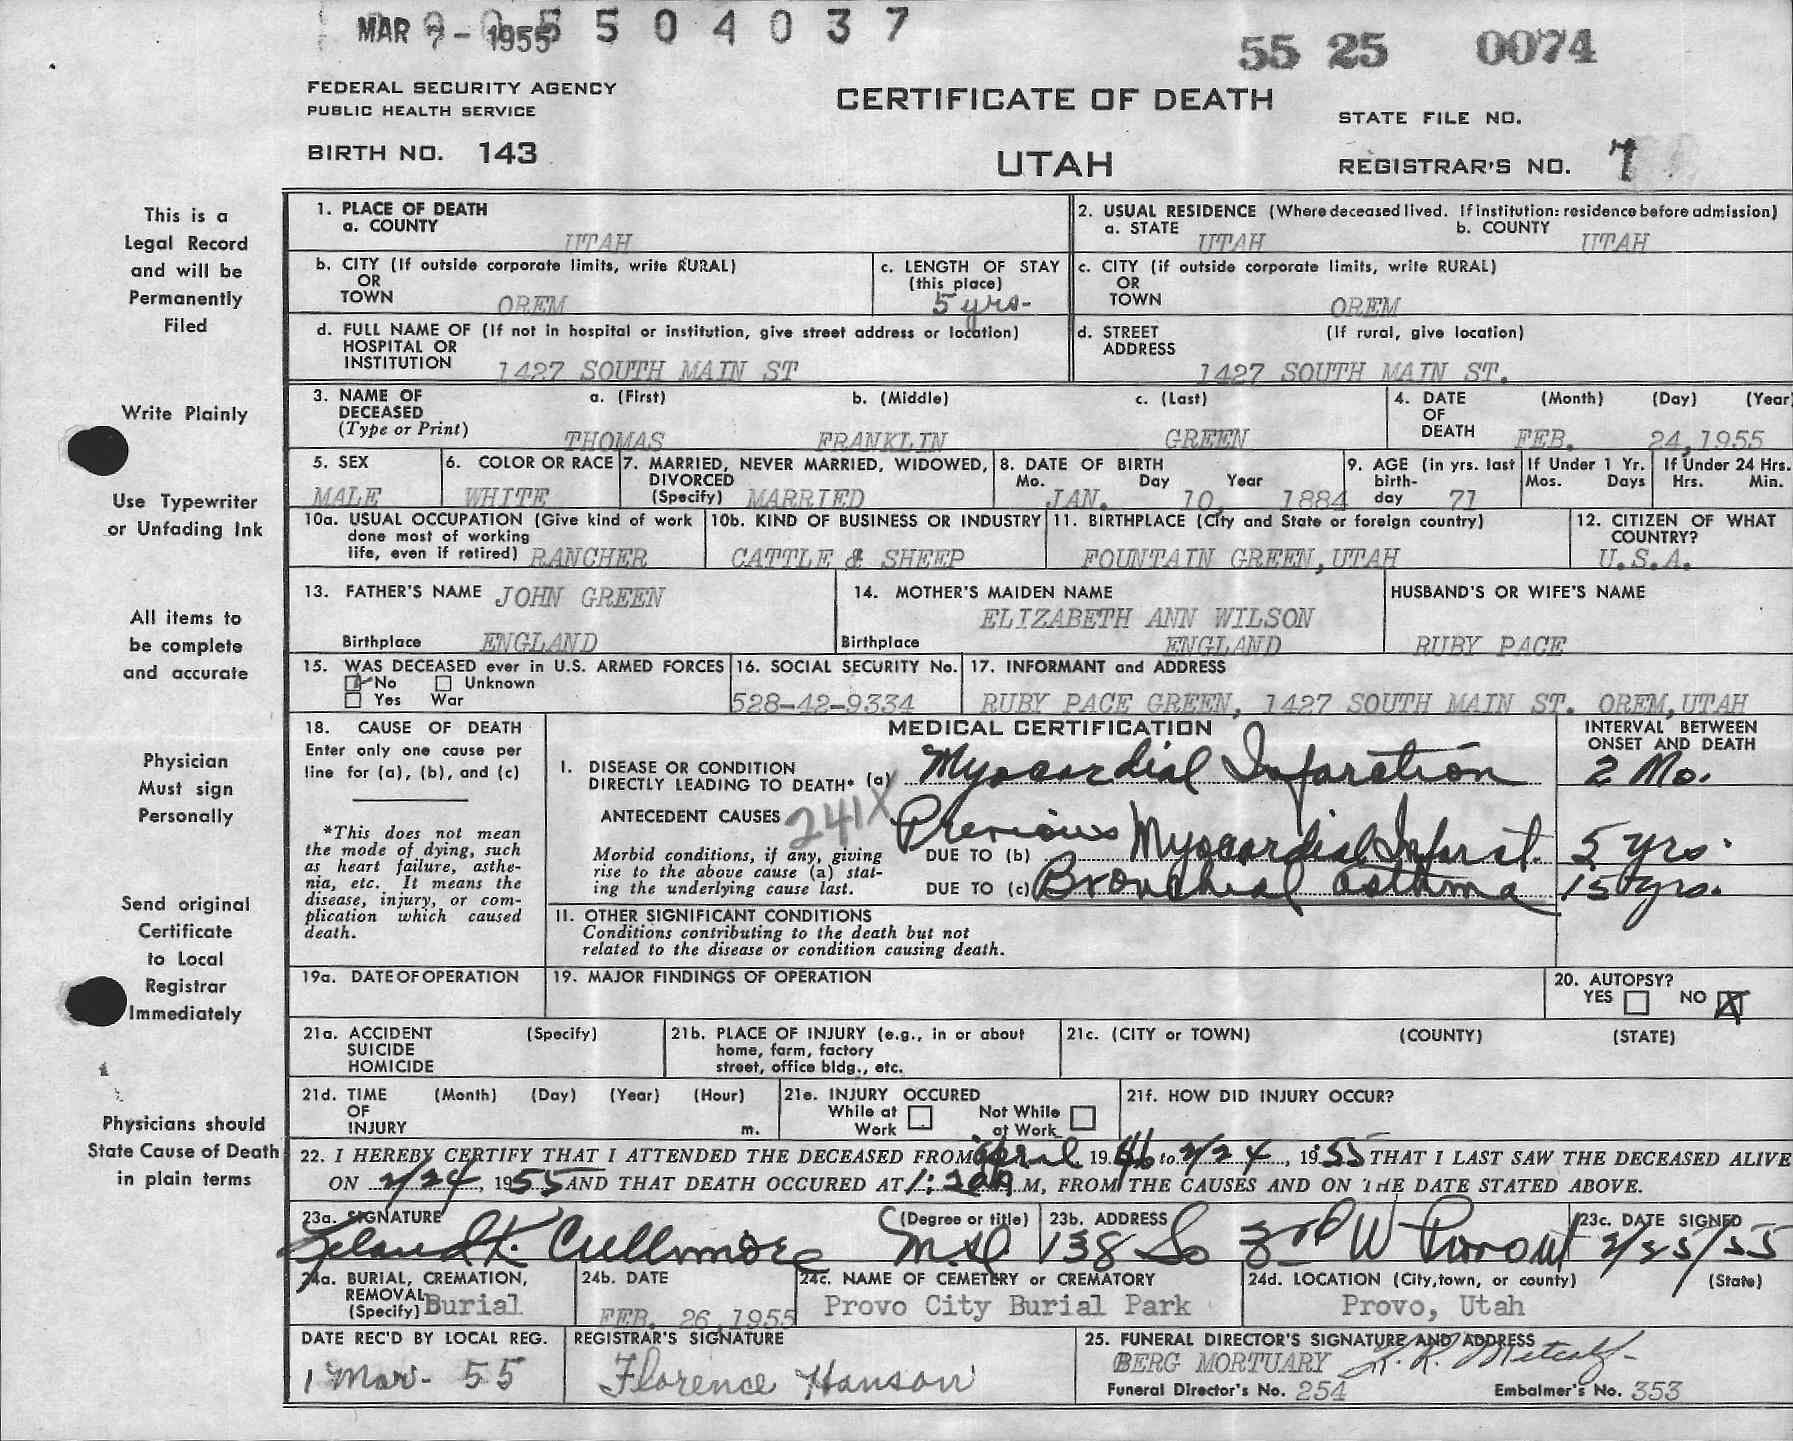 MAR 7 - 1955 5 5 0 4 0 3 7
55 25 0074
FEDERAL SECURITY AGENCY
PUBLIC HEALTH SERVICE
CERTIFICATE OF DEATH
STATE FILE NO.
BIRTH NO. 143
UTAH
REGISTRAR'S NO. 7
This is a
Legal Record
and will be
Permanently
Filed
Write Plainly
Use Typewriter
or Unfading Ink
All items to
be complete
and accurate
Physician
Must sign
Personally
Send original
Certificate
to Local
Registrar
Immediately
Physicians should
State Cause of Death
in plain terms
1. PLACE OF DEATH
a. COUNTY
UTAH
2. USUAL RESIDENCE (Where deceased lived. If institution: residence before admission)
a. STATE UTAH b. COUNTY UTAH
b. CITY (If outside corporate limits, write RURAL)
OR
TOWN OREM
c. LENGTH OF STAY
(this place)
5 yrs-
c. CITY (if outside corporate limits, write RURAL)
OR
TOWN OREM
d. FULL NAME OF (If not in hospital or institution, give street address or location)
HOSPITAL OR
INSTITUTION 1427 SOUTH MAIN ST
d. STREET (If rural, give location)
ADDRESS
1427 SOUTH MAIN ST.
3. NAME OF a. (First) b. (Middle) c. (Last)
DECEASED
(Type or Print) THOMAS FRANKLIN GREEN
4. DATE (Month) (Day) (Year)
OF
DEATH FEB. 24,1955
5. SEX
MALE
6. COLOR OR RACE
WHITE
7. MARRIED, NEVER MARRIED, WIDOWED,
DIVORCED
(Specify) MARRIED
8. DATE OF BIRTH
Mo. Day Year
JAN. 10, 1884
9. AGE (in yrs. last
birth-
day 71
If Under 1 Yr.
Mos. Days
If Under 24 Hrs.
Hrs. Min.
10a. USUAL OCCUPATION (Give kind of work
done most of working
life, even if retired) RANCHER
10b. KIND OF BUSINESS OR INDUSTRY
CATTLE & SHEEP
11. BIRTHPLACE (City and State or foreign country)
FOUNTAIN GREEN,UTAH
12. CITIZEN OF WHAT
COUNTRY?
U.S.A.
13. FATHER'S NAME JOHN GREEN
Birthplace ENGLAND
14. MOTHER'S MAIDEN NAME
ELIZABETH ANN WILSON
Birthplace ENGLAND
HUSBAND'S OR WIFE'S NAME
RUBY PACE
15. WAS DECEASED ever in U.S. ARMED FORCES
No Unknown
Yes War
16. SOCIAL SECURITY No.
528-42-9334
17. INFORMANT and ADDRESS
RUBY PACE GREEN, 1427 SOUTH MAIN ST. OREM,UTAH
18. CAUSE OF DEATH
Enter only one cause per
line for (a), (b), and (c)
*This does not mean
the mode of dying, such
as heart failure, asthe-
nia, etc. It means the
disease, injury, or com-
plication which caused
death.
MEDICAL CERTIFICATION
INTERVAL BETWEEN
ONSET AND DEATH
I. DISEASE OR CONDITION
DIRECTLY LEADING TO DEATH* (a) Myocardial Infarction 2 Mo.
ANTECEDENT CAUSES 241X
Morbid conditions, if any, giving
rise to the above cause (a) stat-
ing the underlying cause last.
DUE TO (b) Previous Myocardial Infarct. 5 yrs.
DUE TO (c) Bronchial asthma 15 yrs.
II. OTHER SIGNIFICANT CONDITIONS
Conditions contributing to the death but not
related to the disease or condition causing death.
19a. DATE OF OPERATION
19. MAJOR FINDINGS OF OPERATION
20. AUTOPSY?
YES NO X
21a. ACCIDENT (Specify)
SUICIDE
HOMICIDE
21b. PLACE OF INJURY (e.g., in or about
home, farm, factory
street, office bldg., etc.
21c. (CITY or TOWN) (COUNTY) (STATE)
21d. TIME (Month) (Day) (Year) (Hour)
OF
INJURY m.
21e. INJURY OCCURED
While at Work
Not While at Work
21f. HOW DID INJURY OCCUR?
22. I HEREBY CERTIFY THAT I ATTENDED THE DECEASED FROM April 19 46 to 2/24, 1955 THAT I LAST SAW THE DECEASED ALIVE
ON 2/24, 1955 AND THAT DEATH OCCURED AT 1:20 A M, FROM THE CAUSES AND ON THE DATE STATED ABOVE.
23a. SIGNATURE (Degree or title)
Leland K. Cullimore M.D.
23b. ADDRESS
138 So 3rd W Provo ut
23c. DATE SIGNED
2/25/55
24a. BURIAL, CREMATION,
REMOVAL
(Specify) Burial
24b. DATE
FEB. 26,1955
24c. NAME OF CEMETERY or CREMATORY
Provo City Burial Park
24d. LOCATION (City,town, or county) (State)
Provo, Utah
DATE REC'D BY LOCAL REG.
1 Mar- 55
REGISTRAR'S SIGNATURE
Florence Hanson
25. FUNERAL DIRECTOR'S SIGNATURE AND ADDRESS
BERG MORTUARY R. R. Metcalf-
Funeral Director's No. 254 Embalmer's No. 353